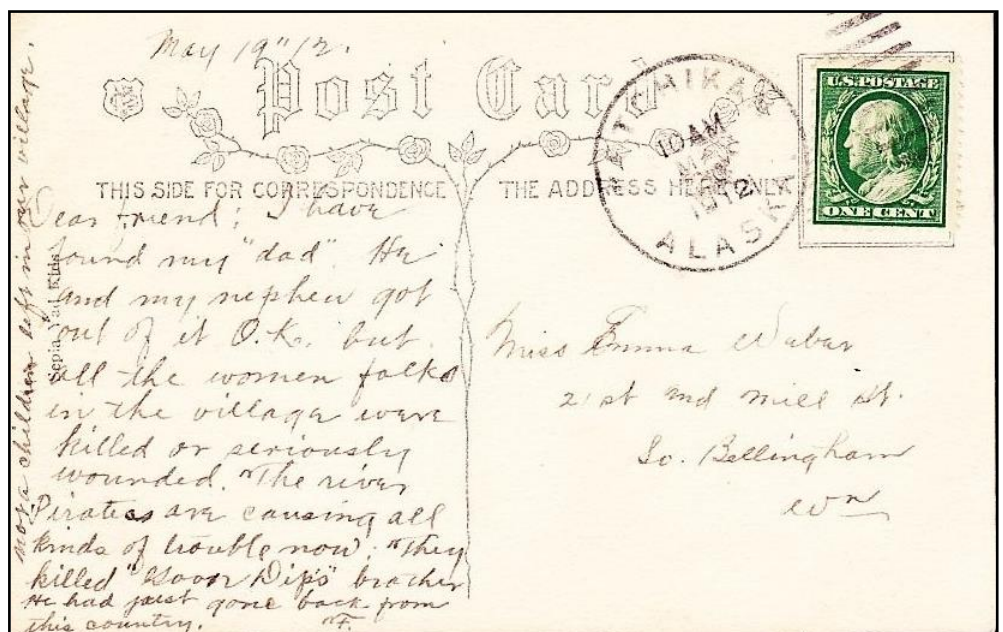 May 19" 12.
Post Card
THIS SIDE FOR CORRESPONDENCE
THE ADDRESS HERE ONLY
KETCHIKAN
10 AM
MAY
1912
ALASKA
U.S. POSTAGE
ONE CENT
Dear Friend; I have
found my "dad". He
and my nephew got
out of it O.K. but
all the women folks
in the village were
killed or seriously
wounded. The river
Pirates are causing all
kinds of trouble now. They
killed brother
He had just gone back from
this country. F.
children left in our village.
Sepia Kids
Miss Emma Weber
21st and Mill St.
So. Bellingham
Wn